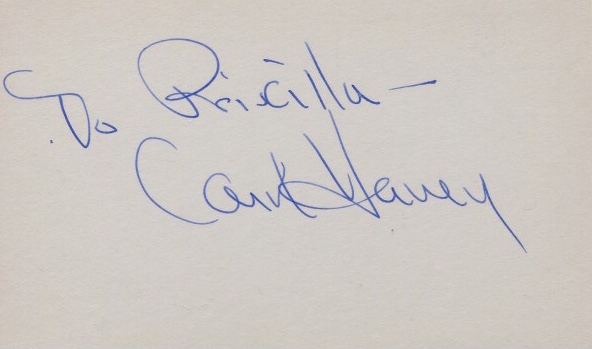 To Priscilla —
Carol Haney